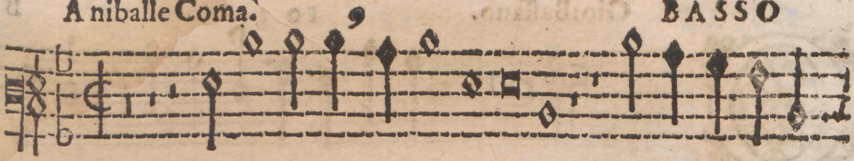 Aniballe Coma. BASSO